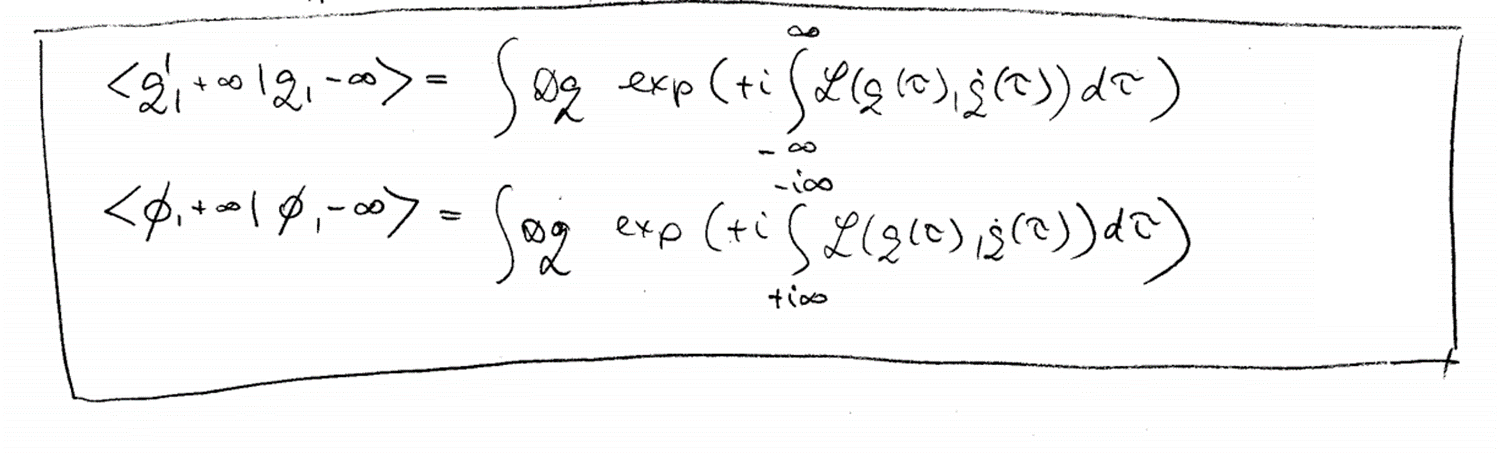 <q', +∞ | q, -∞> = ∫ 𝒟q exp(+i ∫_{-∞}^{∞} ℒ(q(τ), q̇(τ)) dτ)
<ϕ, +∞ | ϕ, -∞> = ∫ 𝒟q exp(+i ∫_{+i∞}^{-i∞} ℒ(q(τ), q̇(τ)) dτ)